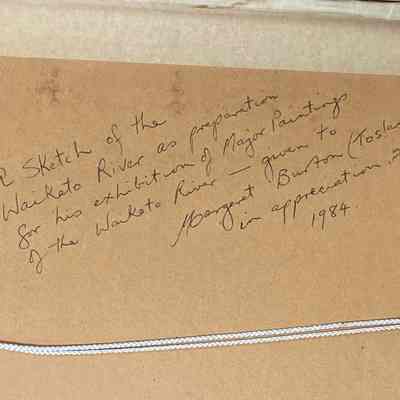 Sketch of the
Waikato River as preparation
for his exhibition of Major Paintings
of the Waikato River — given to
Margaret Burton (Toslan
in appreciation, 2
1984.